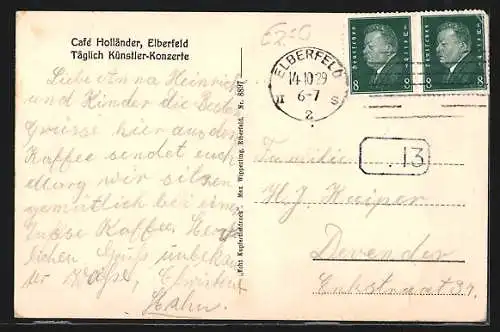 Café Holländer, Elberfeld
Täglich Künstler-Konzerte
Liebe Anna Heinrich
und Kinder die besten
Grüsse hier aus dem
Kaffee sendet euch
wir sitzen
gemütlich bei einer
Tasse Kaffee. Herz
lichen Gruß unbekan
ter
Hahn.
Echt Kupfertiefdruck. Max Wipperling, Elberfeld. Nr. 8807
6280
ELBERFELD
14.10.29
6-7
II S
2
Deutsches Reich
8 8
Deutsches Reich
8 8
13
Familie
H J Kuiper
Devender
straat 31.